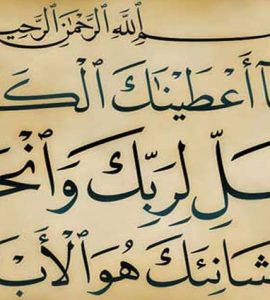 ـسم ٱللَّهِ ٱلرَّحْمَٰنِ ٱلرَّحِيـ
ـآ أَعْطَيْنَٰكَ ٱلْكَـ
ـلِّ لِرَبِّكَ وَٱنْحَـ
شَانِئَكَ هُوَ ٱلْأَبْـ